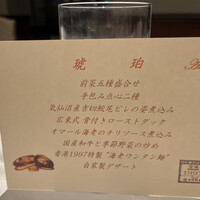 琥珀
前菜五種盛合せ
手包み点心二種
気仙沼産吉切鮫尾ビレの姿煮込み
広東式 骨付きローストダック
オマール海老のチリソース煮込み
国産和牛と季節野菜の炒め
香港1997特製“海老ワンタン麺”
自家製デザート